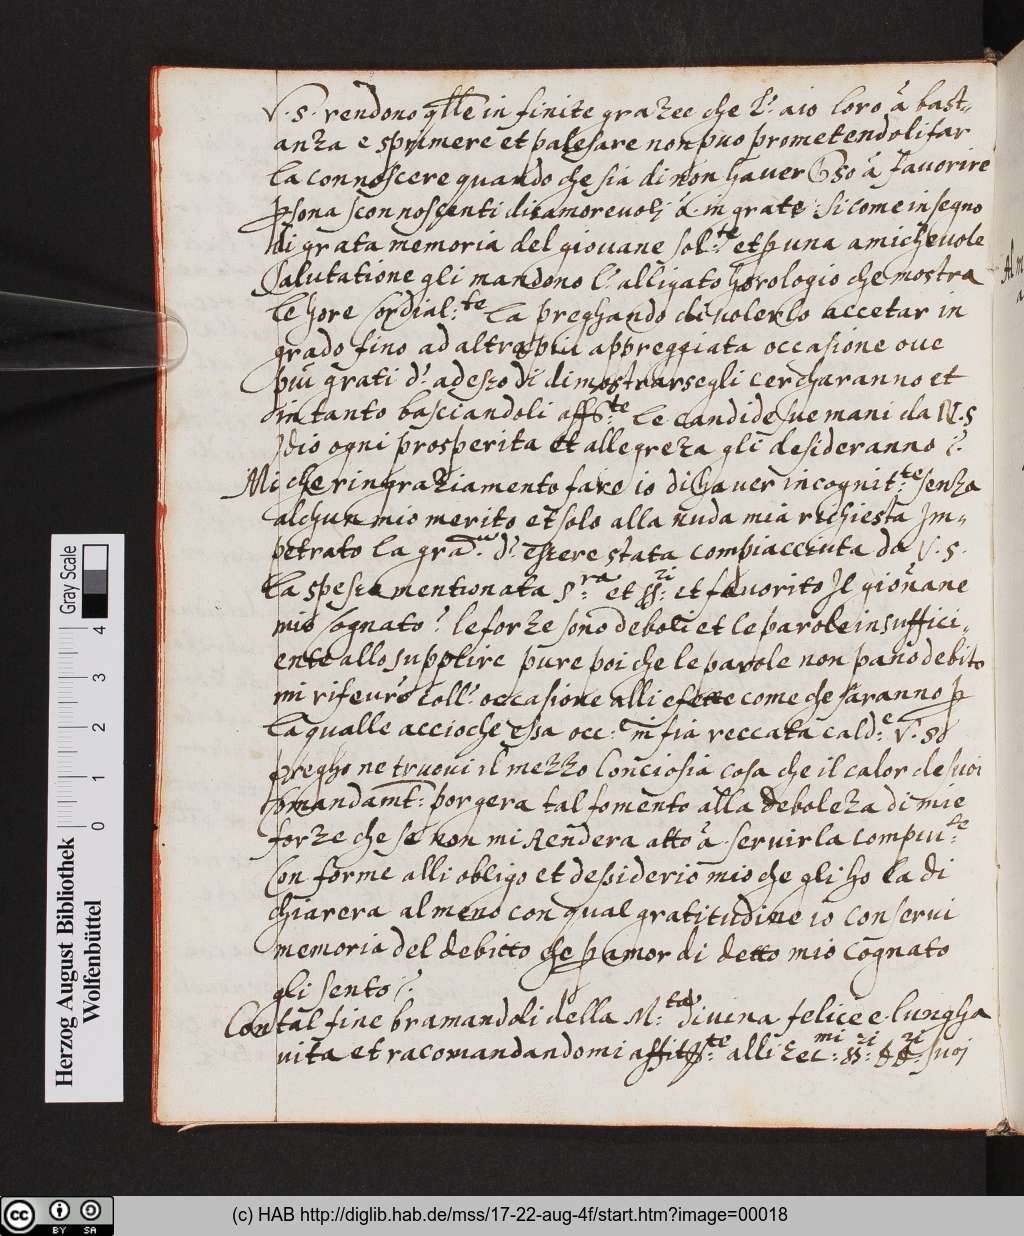 V. S. rendono qlle in finite grazee che l' aio loro à bast-
anza e sprimere et palesare non puo prometendoli far
la connoscere quando che sia di non haver V So à favorire
psona sconnoscenti disamorevoli à in grate. Si come in segno
di grata memoria del giovane sol:te et p una amichevole
Salutatione gli mandono l' alligato horologio che mostra
le hore Cordial:te la preghando di volerlo accetar in
grado fino ad altra piu appreggiata occasione ove
piu grati d' adesso di dimostrarsegli cercharanno et
in tanto basciandoli affte le candide sue mani da N. S
Idio ogni prosperita et allegreza gli desideranno
Mi che ringraziamento fare io di haver incognit:te senza
alchun mio merito et solo alla nuda mia richiesta Im-
petrato la gra d' essere stata compiacciuta da V. S.
la spesse mentionata S:ra et SS:ri et favorito Il giovane
mio cognato? le forze sono deboli et le parole insuffici-
ente allo supplire pure poi che le parole non pano debito
mi riseuro coll' occasione alli efette come che saranno p
la qualle accioche essa occ:e mi sia reccata cald:e V. So
pregho ne truovi il mezzo Conciosia cosa che il calor de suoi
comandamt: porgera tal fomento alla deboleza di mie
forze che se non mi Rendera atto à servirla compiu:te
Con forme alli obligo et dessiderio mio che gli ho la di
chiarera almeno con qual gratitudine io conservi
memoria del debitto che p amor di detto mio Cognato
gli sento
Con tal fine bramandoli della M:tà divina felice e lungha
vita et racomandandomi alli Ecc:mi SS:ri suoi
Al m
Gray Scale
4
3
2
1
0
Herzog August Bibliothek
Wolfenbüttel
cc BY SA
(c) HAB http://diglib.hab.de/mss/17-22-aug-4f/start.htm?image=00018